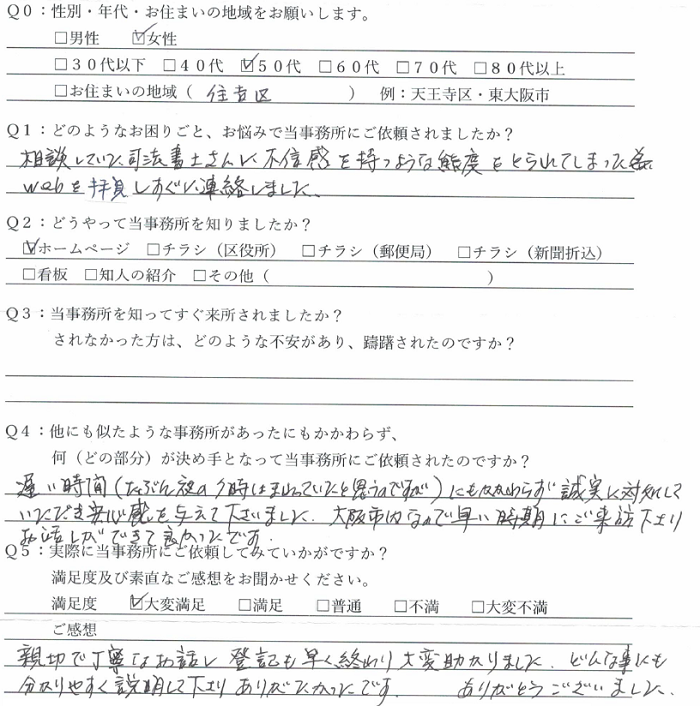 Q0：性別・年代・お住まいの地域をお願いします。
□男性　☑女性
□30代以下 □40代 ☑50代 □60代 □70代 □80代以上
□お住まいの地域（ 住吉区 ） 例：天王寺区・東大阪市
Q1：どのようなお困りごと、お悩みで当事務所にご依頼されましたか？
相談していた司法書士さんに不信感を持つような態度をとられてしまった為
webを拝見しすぐに連絡しました、
Q2：どうやって当事務所を知りましたか？
☑ホームページ □チラシ（区役所） □チラシ（郵便局） □チラシ（新聞折込）
□看板 □知人の紹介 □その他（ ）
Q3：当事務所を知ってすぐ来所されましたか？
されなかった方は、どのような不安があり、躊躇されたのですか？
Q4：他にも似たような事務所があったにもかかわらず、
何（どの部分）が決め手となって当事務所にご依頼されたのですか？
遅い時間（たぶん夜の9時はまわっていたと思うのですが）にもかかわらず誠実に対応して
いただき安心感を与えて下さいました、大阪市内なので早い時期にご来訪下さり
お話しができて良かったです.
Q5：実際に当事務所にご依頼してみていかがですか？
満足度及び素直なご感想をお聞かせください。
満足度 ☑大変満足 □満足 □普通 □不満 □大変不満
ご感想
親切で丁寧なお話し 登記も早く終わり大変助かりました、どんな事にも
分かりやすく説明して下さり ありがたかったです. ありがとうございました、